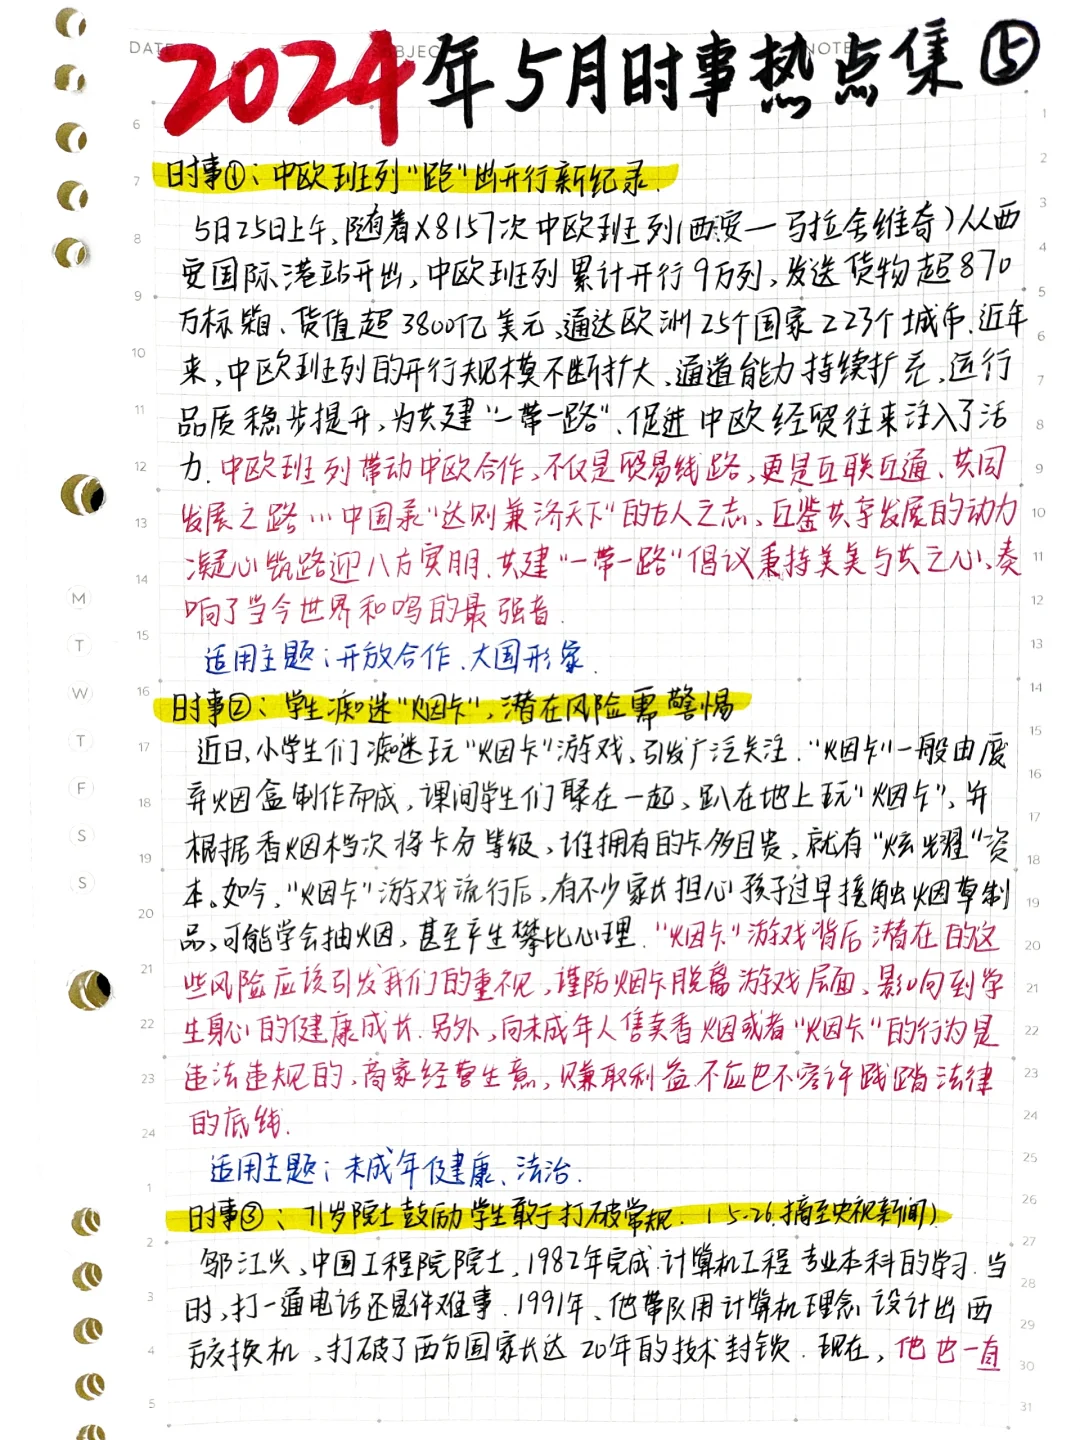 DATE SUBJECT NOTE
2024年5月时事热点集⑤
时事①：中欧班列“跑”出开行新纪录.
5月25日上午,随着X8157次中欧班列(西安—马拉舍维奇)从西
安国际港站开出,中欧班列累计开行9万列,发送货物超870
万标箱、货值超3800亿美元,通达欧洲25个国家223个城市.近年
来,中欧班列的开行规模不断扩大、通道能力持续扩充、运行
品质稳步提升,为共建“一带一路”、促进中欧经贸往来注入了活
力.中欧班列带动中欧合作,不仅是贸易线路,更是互联互通、共同
发展之路…中国承“达则兼济天下”的古人之志、互鉴共享发展的动力
凝心筑路迎八方宾朋.共建“一带一路”倡议秉持美美与共之心、奏
响了当今世界和鸣的最强音.
适用主题：开放合作、大国形象.
时事②：学生痴迷“烟卡”,潜在风险需警惕
近日,小学生们痴迷玩“烟卡”游戏,引发广泛关注.“烟卡”一般由废
弃烟盒制作而成,课间学生们聚在一起,趴在地上玩“烟卡”,并
根据香烟档次将卡分等级,谁拥有的卡多且贵、就有“炫耀”资
本。如今,“烟卡”游戏流行后,有不少家长担心孩子过早接触烟草制
品,可能学会抽烟,甚至产生攀比心理.“烟卡”游戏背后潜在的这
些风险应该引发我们的重视,谨防烟卡脱离游戏层面,影响到学
生身心的健康成长.另外,向未成年人售卖香烟或者“烟卡”的行为是
违法违规的,商家经营生意,赚取利益不应也不容许践踏法律
的底线.
适用主题：未成年健康、法治.
时事③：71岁院士鼓励学生敢于打破常规.(5-26.摘至央视新闻)
邬江兴,中国工程院院士,1982年完成计算机工程专业本科的学习.当
时,打一通电话还是件难事.1991年、他带队用计算机理念设计出西
方交换机,打破了西方国家长达20年的技术封锁.现在,他也一直
M
T
W
T
F
S
S
6
7
8
9
10
11
12
13
14
15
16
17
18
19
20
21
22
23
24
1
2
3
4
5
1
2
3
4
5
6
7
8
9
10
11
12
13
14
15
16
17
18
19
20
21
22
23
24
25
26
27
28
29
30
31